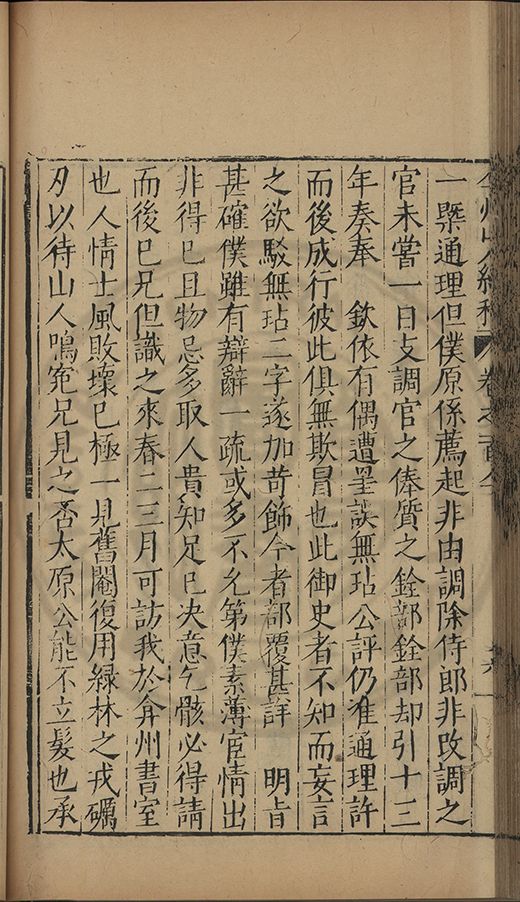 弇州山人續稿 卷之一百九 六
一槩通理但僕原係薦起非由調除侍郎非改調之
官未嘗一日支調官之俸質之銓部銓部却引十三
年奏奉 欽依有偶遭詿誤無玷公評仍准通理許
而後成行彼此俱無欺冒也此御史者不知而妄言
之欲駁無玷二字遂加苛飾今者部覆甚詳 明旨
甚確僕雖有辯辭一疏或多不允第僕素薄宦情出
非得已且物忌多取人貴知足已决意乞骸必得請
而後已兄但識之來春二三月可訪我於弇州書室
也人情士風敗壞已極一見舊閹復用緑林之戎礪
刃以待山人鳴冤兄見之否太原公能不立髮也承